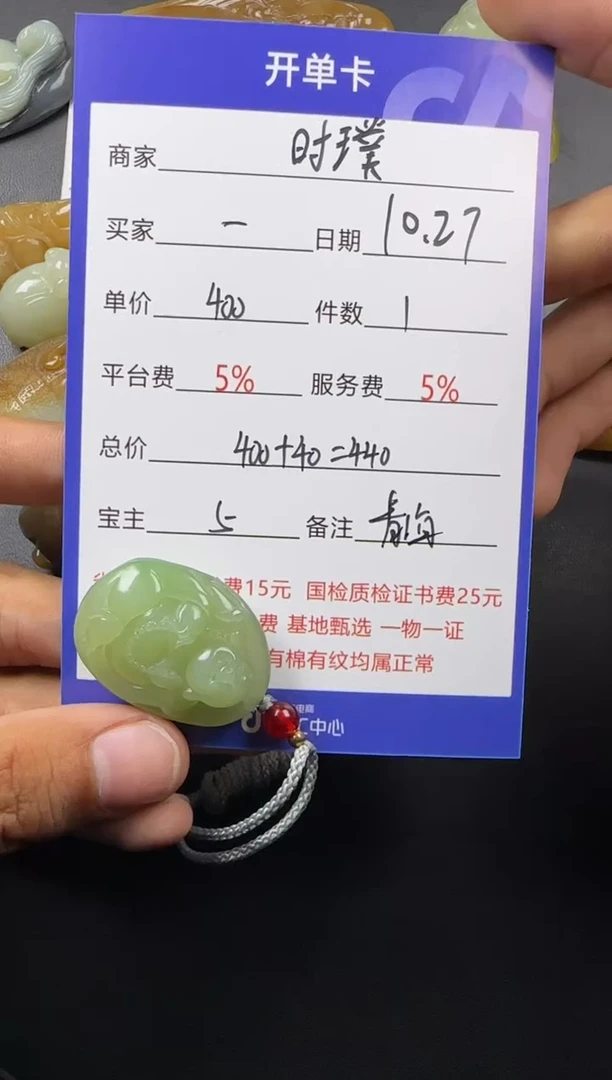 开单卡
商家 时璞
买家 一 日期 10.27
单价 400 件数 1
平台费 5% 服务费 5%
总价 400+40=440
宝主 5 备注 青海
费15元 国检质检证书费25元
费 基地甄选 一物一证
有棉有纹均属正常
电商
中心